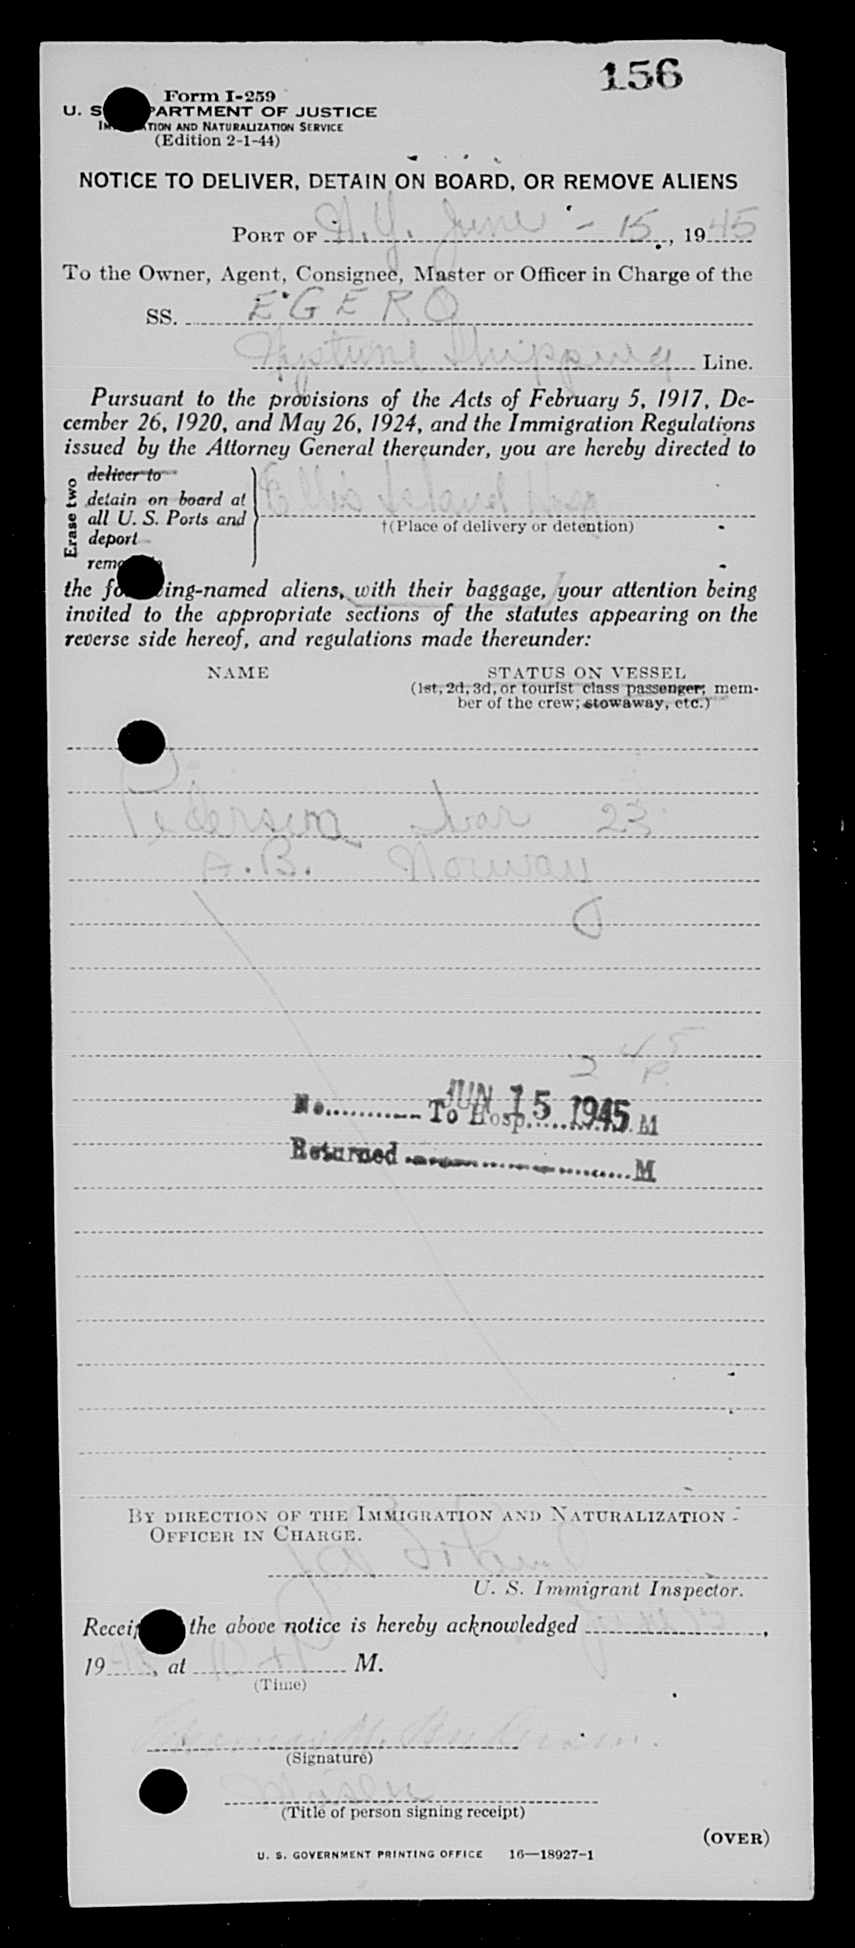 156
Form I-259
U. S. DEPARTMENT OF JUSTICE
IMMIGRATION AND NATURALIZATION SERVICE
(Edition 2-1-44)
NOTICE TO DELIVER, DETAIN ON BOARD, OR REMOVE ALIENS
PORT OF N.Y. June - 15, 1945
To the Owner, Agent, Consignee, Master or Officer in Charge of the
SS. EGERO
Neptune Shipping Line.
Pursuant to the provisions of the Acts of February 5, 1917, De-
cember 26, 1920, and May 26, 1924, and the Immigration Regulations
issued by the Attorney General thereunder, you are hereby directed to
Erase two
deliver to
detain on board at
all U. S. Ports and
deport
remove to
Ellis Island Hosp
†(Place of delivery or detention)
the following-named aliens, with their baggage, your attention being
invited to the appropriate sections of the statutes appearing on the
reverse side hereof, and regulations made thereunder:
NAME STATUS ON VESSEL
(1st, 2d, 3d, or tourist class passenger; mem-
ber of the crew; stowaway, etc.)
Pedersen Ivar 23
A.B. Norway
2 45 P.
JUN 15 1945
No. To Hosp. M
Returned M
BY DIRECTION OF THE IMMIGRATION AND NATURALIZATION
OFFICER IN CHARGE.
U. S. Immigrant Inspector.
Receipt of the above notice is hereby acknowledged ,
19 , at M.
(Time)
(Signature)
(Title of person signing receipt)
(OVER)
U. S. GOVERNMENT PRINTING OFFICE 16—18927-1